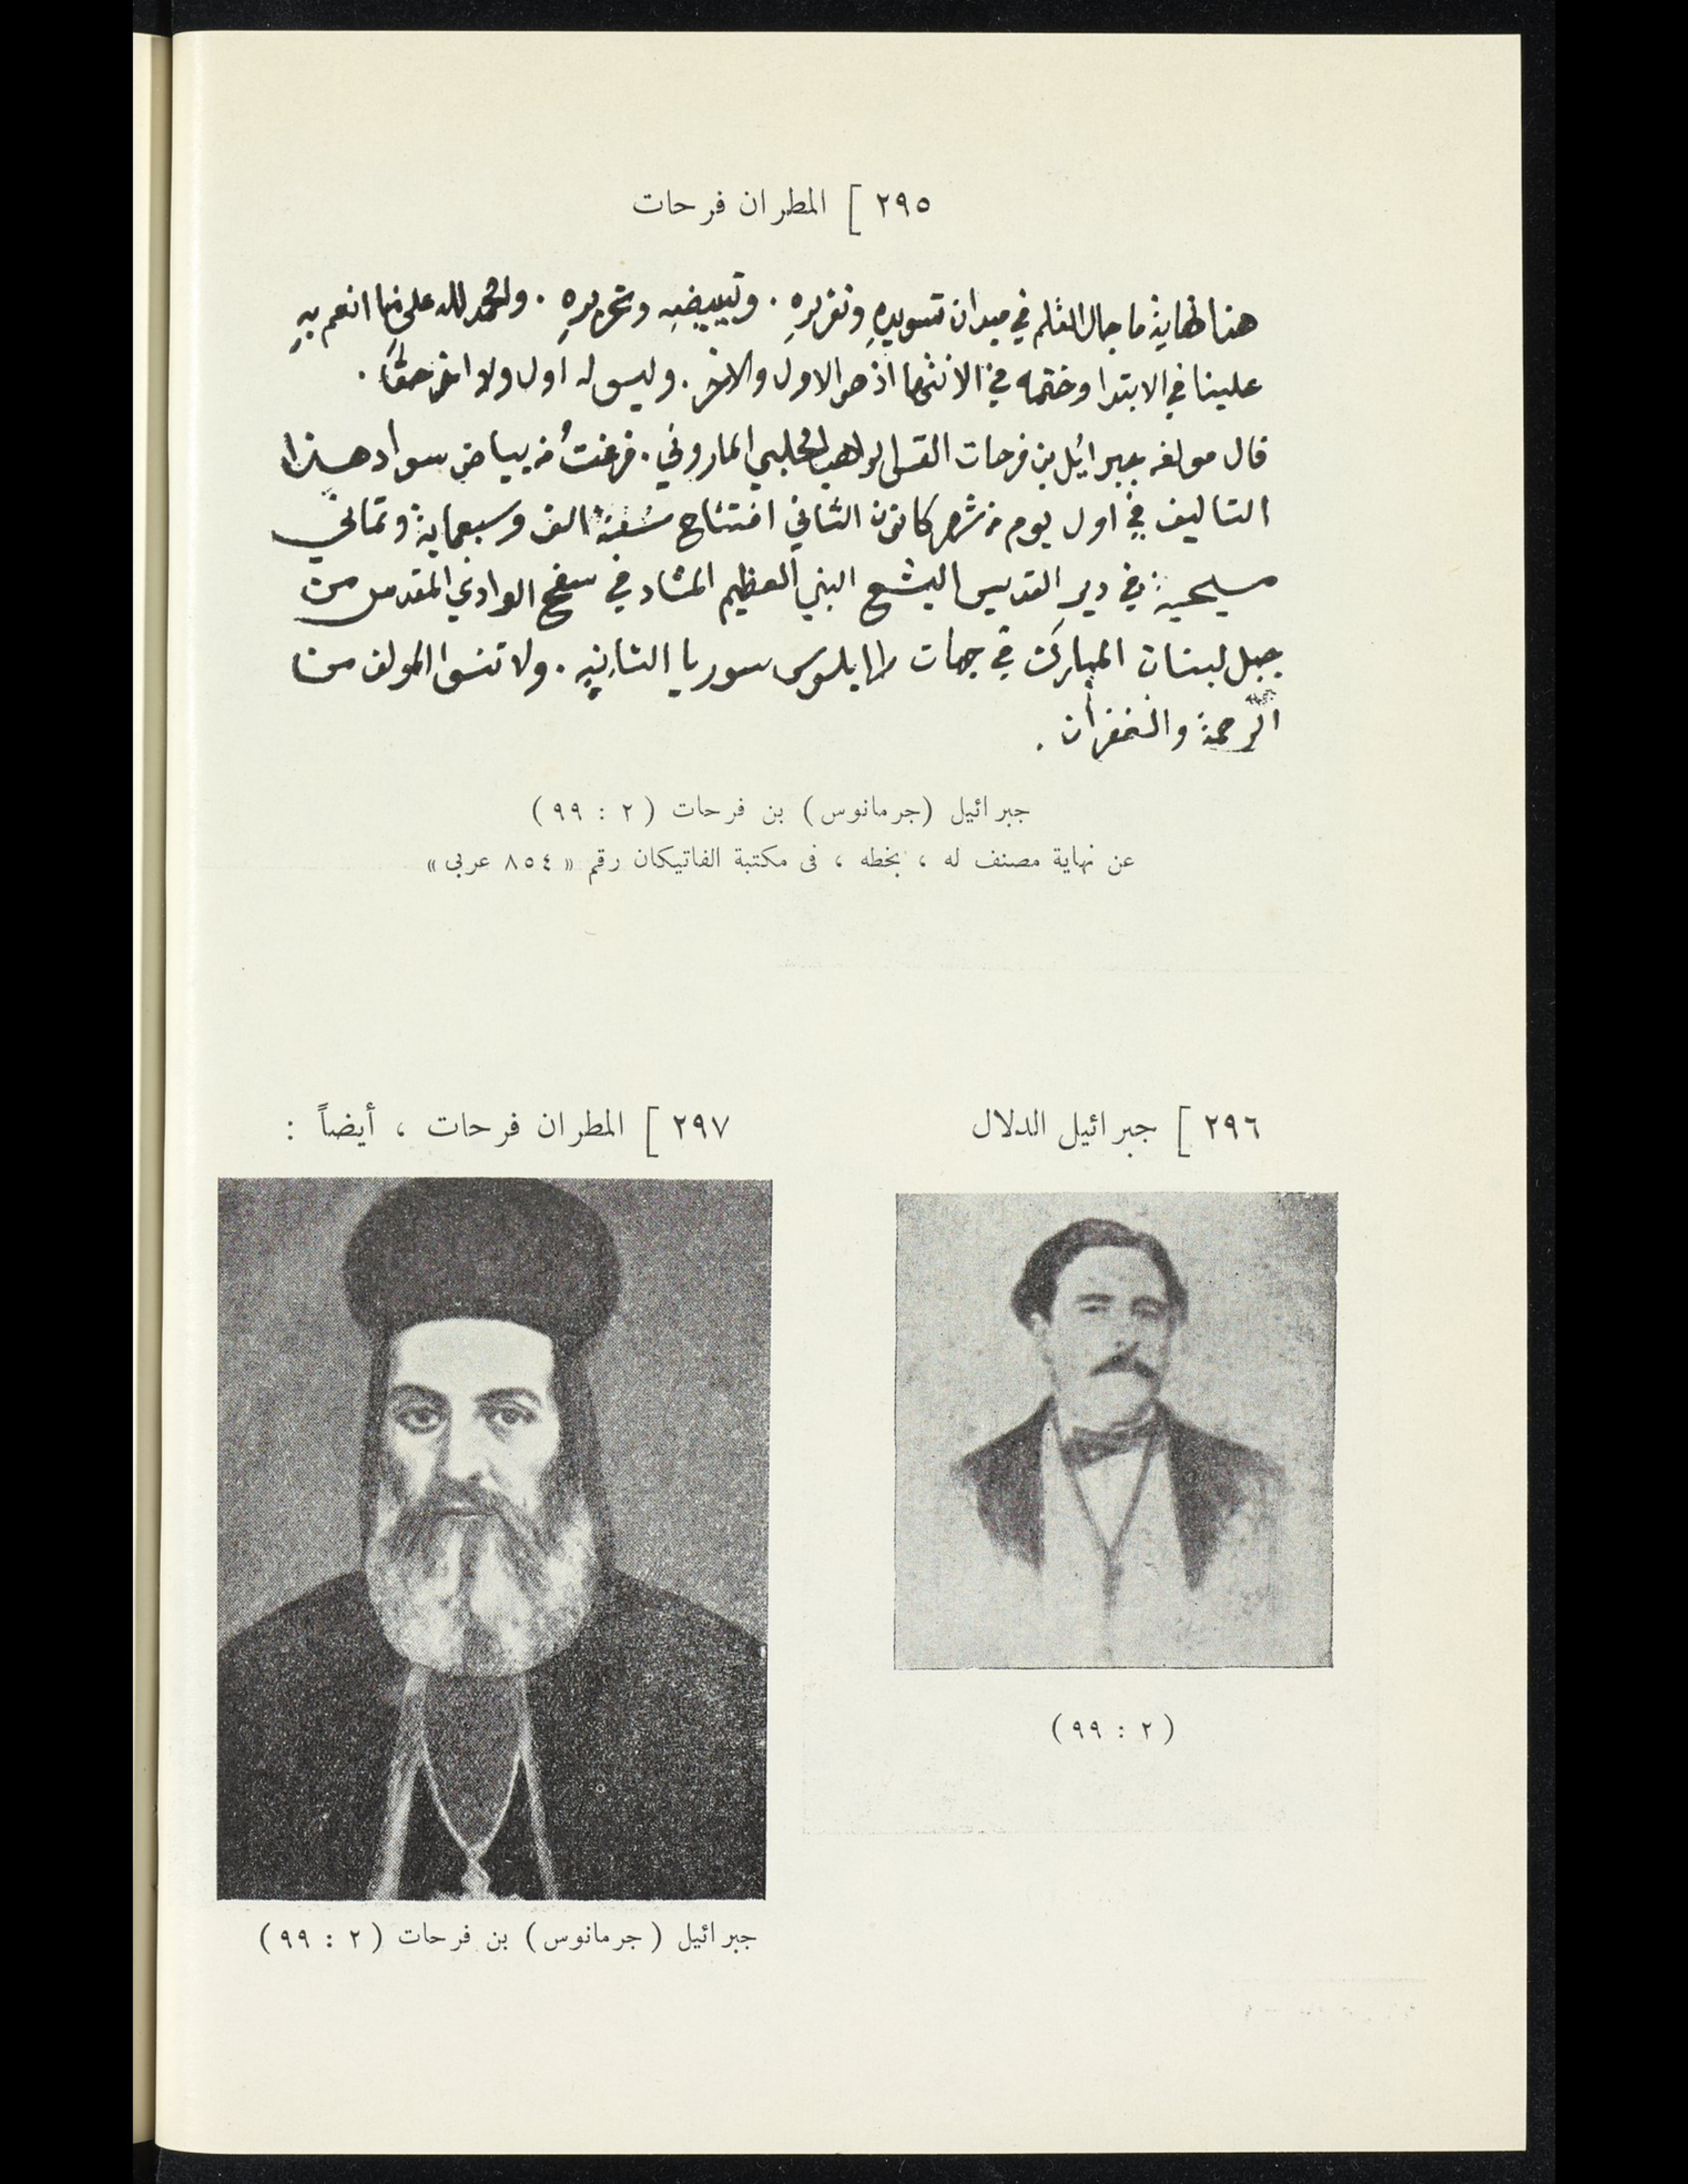 ٢٩٥ ] المطران فرحات
هذا نهاية ما جال القلم في ميدان تسويدهِ وتقريرهِ . وتبييضهِ وتحريرهِ . والحمد لله على ما انعم بهِ
علينا في الابتدا وختمه في الانتها اذ هو الاول والاخر . وليس له اول ولا اخر حقًا .
قال مولفه جبرائيل بن فرحات القس الراهب الحلبي الماروني . فرغتُ من بياض سواد هذا
التاليف في اول يوم من شهر كانون الثاني افتتاح سنة الف وسبعماية وثماني
مسيحية في دير القديس اليشع النبي العظيم المشاد في سفح الوادي المقدس من
جبل لبنان المبارك في جهات طرابلوس سوريا الثانيه . ولا تنسوا المولف من
الرحمة والغفران .
جبرائيل (جرمانوس) بن فرحات ( ٢ : ٩٩ )
عن نهاية مصنف له ، بخطه ، فى مكتبة الفاتيكان رقم « ٨٥٤ عربى »
٢٩٦ ] جبرائيل الدلال
( ٢ : ٩٩ )
٢٩٧ ] المطران فرحات ، أيضاً :
جبرائيل ( جرمانوس ) بن فرحات ( ٢ : ٩٩ )